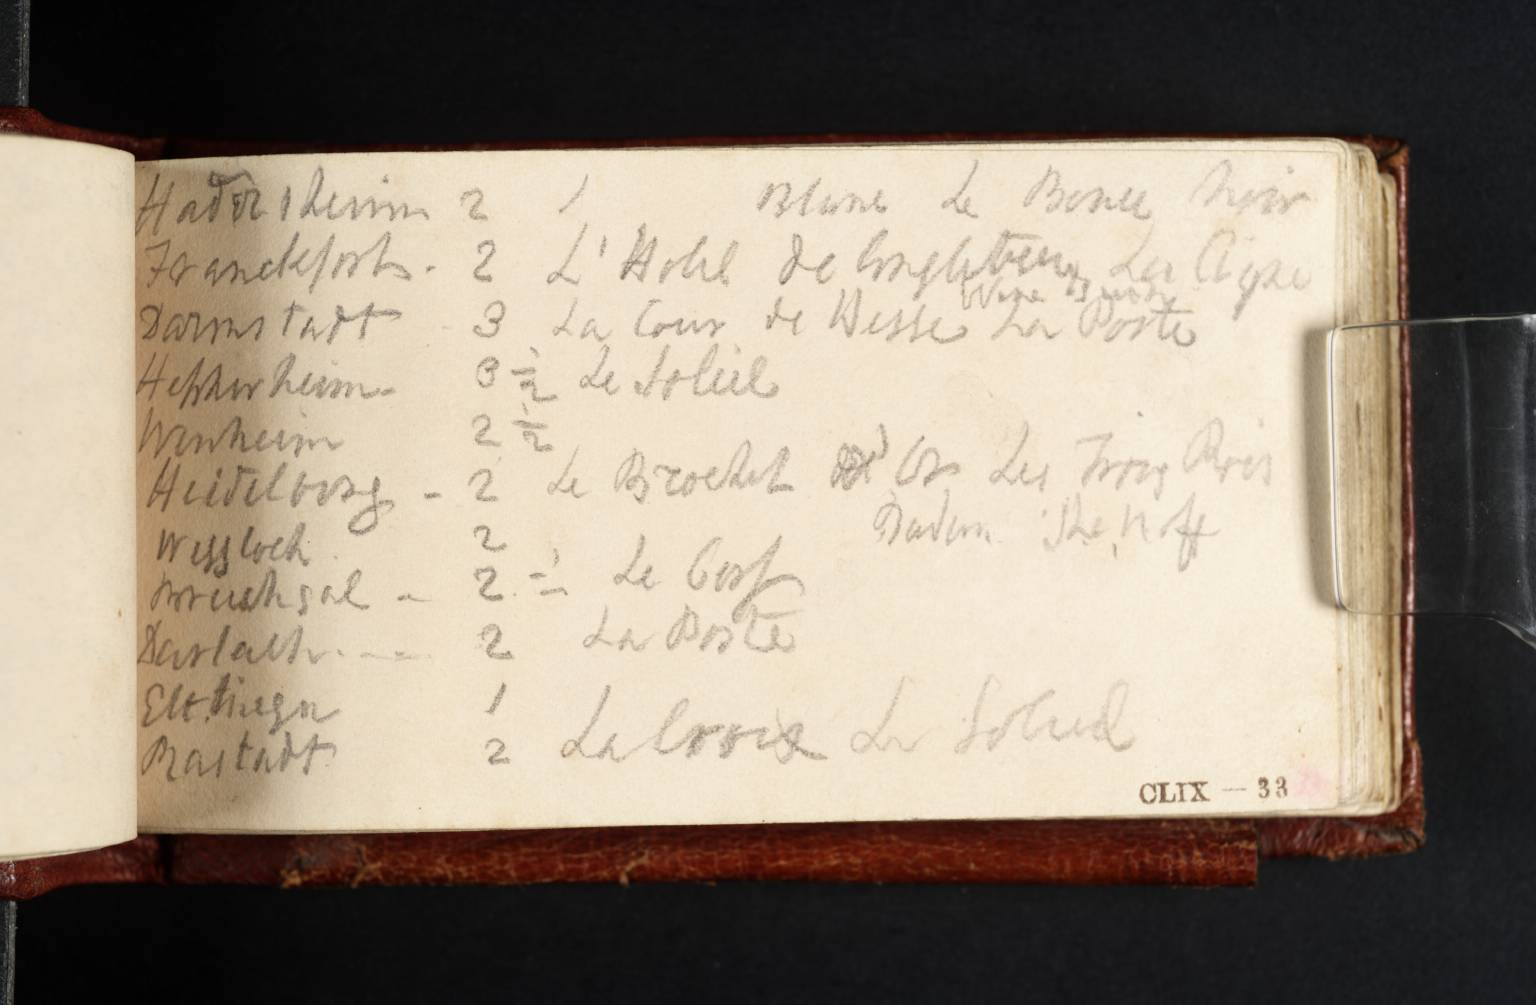 Hadersheim 2 1 Blanc Le Bouce Noir
Franckfort - 2 L'Hotel de Angliteur La Cigne
Wine
Darmstadt - 3 La Cour de Hesse La Poste
Heppenheim - 3 1/2 Le Soleil
Wenheim 2 1/2
Heidelberg - 2 Le Brochet D'Or Les Trois Rois
Badern
Wessloch 2
Bruchsal - 2 1/2 Le Cerf
Darlach - - 2 La Poste
Ettlingen 1
Rastadt 2 La Croix Le Soleil
CLIX - 33